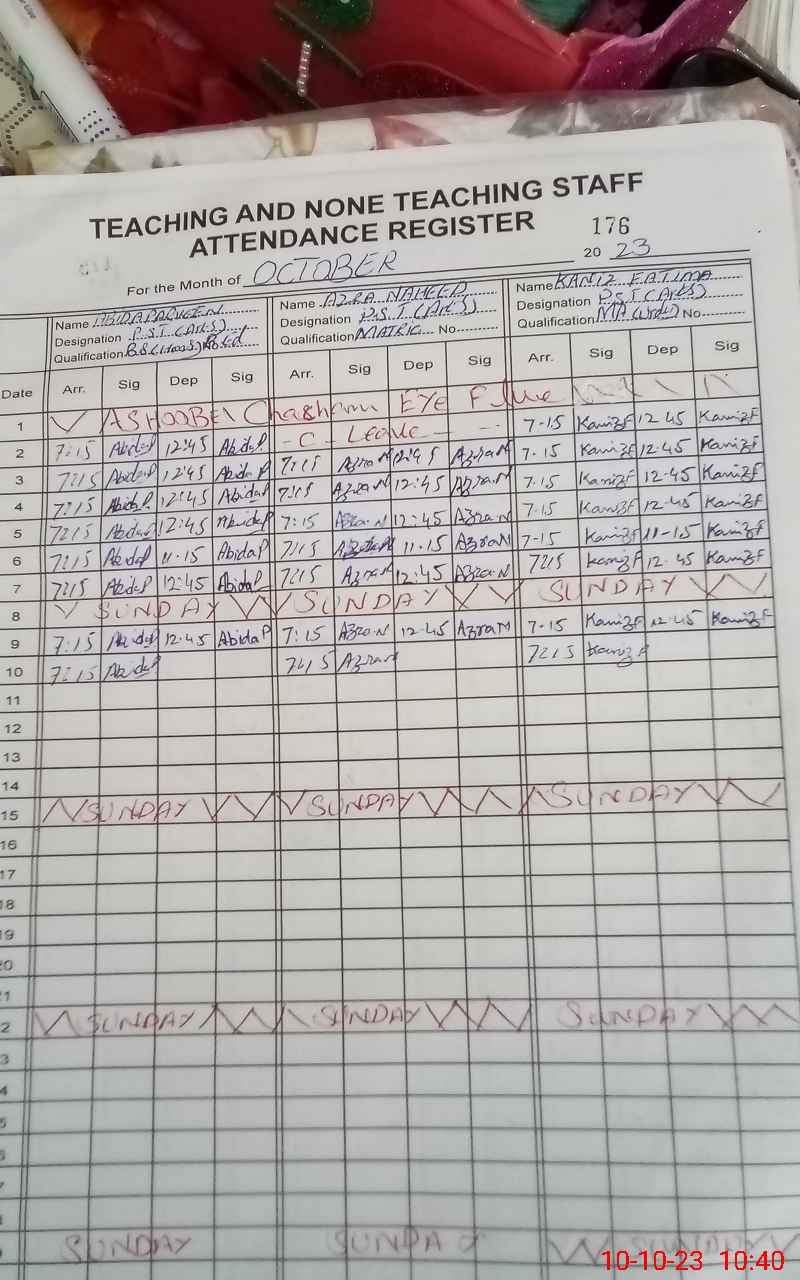 TEACHING AND NONE TEACHING STAFF
ATTENDANCE REGISTER 176
For the Month of OCTOBER 20 23
Name ABIDAPARVEEN Name AZRA NAHEED Name KANIZ FATIMA
Designation P.S.T (Arts) Designation P.S.T (Arts) Designation P.S.T (Arts)
Qualification B.S.(Hons) B.Ed No. Qualification MATRIC No. Qualification MA (Urdu) No.
Date Arr. Sig Dep Sig Arr. Sig Dep Sig Arr. Sig Dep Sig
1 ASHOOBE Chasham EYE
2 7:15 AbidaP 12:45 AbidaP - C - Leave - 7-15 KanizF 12 45 KanizF
3 7:15 AbidaP 12:45 AbidaP 7:15 AzraN 12:45 AzraN 7-15 KanizF 12-45 KanizF
4 7:15 AbidaP 12:45 AbidaP 7:15 AzraN 12:45 AzraN 7.15 KanizF 12-45 KanizF
5 7:15 AbidaP 12:45 AbidaP 7:15 AzraN 12:45 AzraN 7-15 KanizF 12-45 KanizF
6 7:15 AbidaP 11-15 AbidaP 7:15 11.15 AzraN 7-15 KanizF 11-15 KanizF
7 7:15 AbidaP 12:45 AbidaP 7:15 AzraN 12:45 AzraN 7:15 KanizF 12.45 KanizF
8 SUNDAY SUNDAY SUNDAY
9 7:15 AbidaP 12:45 AbidaP 7:15 AzraN 12:45 AzraN 7-15 KanizF 12-45 KanizF
10 7:15 AbidaP 7:15 AzraN 7:15 KanizF
11
12
13
14
15 SUNDAY SUNDAY SUNDAY
16
17
18
19
0
1
2 SUNDAY SUNDAY SUNDAY
3
4
5
SUNDAY SUNDAY SUNDAY
10-10-23 10:40